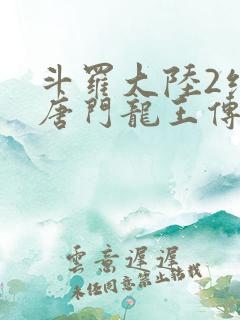 斗羅大陸2絕
唐門龍王傳
雲意遲遲
未任同意禁止轉載